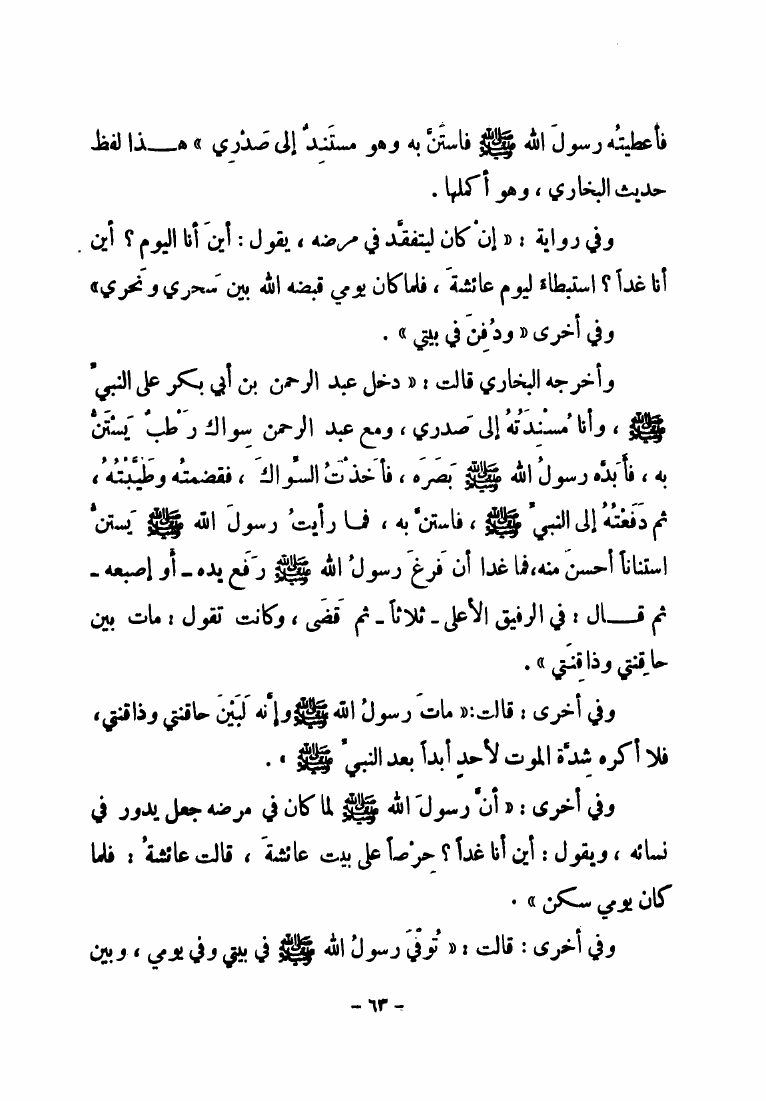 فأعطيتُه رسولَ الله ﷺ فاستَنَّ به وهو مستَنِدٌ إلى صَدْرِي » هــذا لفظ
حديث البخاري ، وهو أكملها .
وفي رواية : « إنْ كان ليتفقَّد في مرضه ، يقول : أينَ أنا اليوم ؟ أين
أنا غداً ؟ استبطاءً ليوم عائشةَ ، فلما كان يومي قبضه الله بين سَحري ونَحري »
وفي أخرى « ودُفِنَ في بيتي » .
وأخرجه البخاري قالت : « دخل عبد الرحمن بن أبي بكر على النبيِّ
ﷺ ، وأنا مُسْنِدَتُهُ إلى صَدري ، ومع عبد الرحمن سِواك رَطْبٌ يَسْتَنُّ
به ، فأَبَدَّه رسولُ الله ﷺ بَصَرَه ، فأخذْتُ السِّواكَ ، فقضمتُه وطَيَّبْتُهُ ،
ثم دَفَعْتُهُ إلى النبيِّ ﷺ ، فاستنَّ به ، فما رأيتُ رسولَ الله ﷺ يَستنُّ
استناناً أحسنَ منه، فما غدا أن فَرغَ رسولُ الله ﷺ رَفَع يده ـ أو إصبعه ـ
ثم قــال : في الرفيق الأعلى ـ ثلاثاً ـ ثم قَضَى ، وكانت تقول : مات بين
حاقِنتي وذاقِنَتي » .
وفي أخرى : قالت: « ماتَ رسولُ الله ﷺ وإنَّه لَبَيْنَ حاقنتي وذاقنتي ،
فلا أكره شِدَّة الموت لأحدٍ أبداً بعد النبيِّ ﷺ » .
وفي أخرى : « أنَّ رسولَ الله ﷺ لما كان في مرضه جعل يدور في
نسائه ، ويقول : أين أنا غداً ؟ حِرْصاً على بيت عائشةَ ، قالت عائشةُ : فلما
كان يومي سكن » .
وفي أخرى : قالت : « تُوفِّيَ رسولُ الله ﷺ في بيتي وفي يومي ، وبين
- ٦٣ -